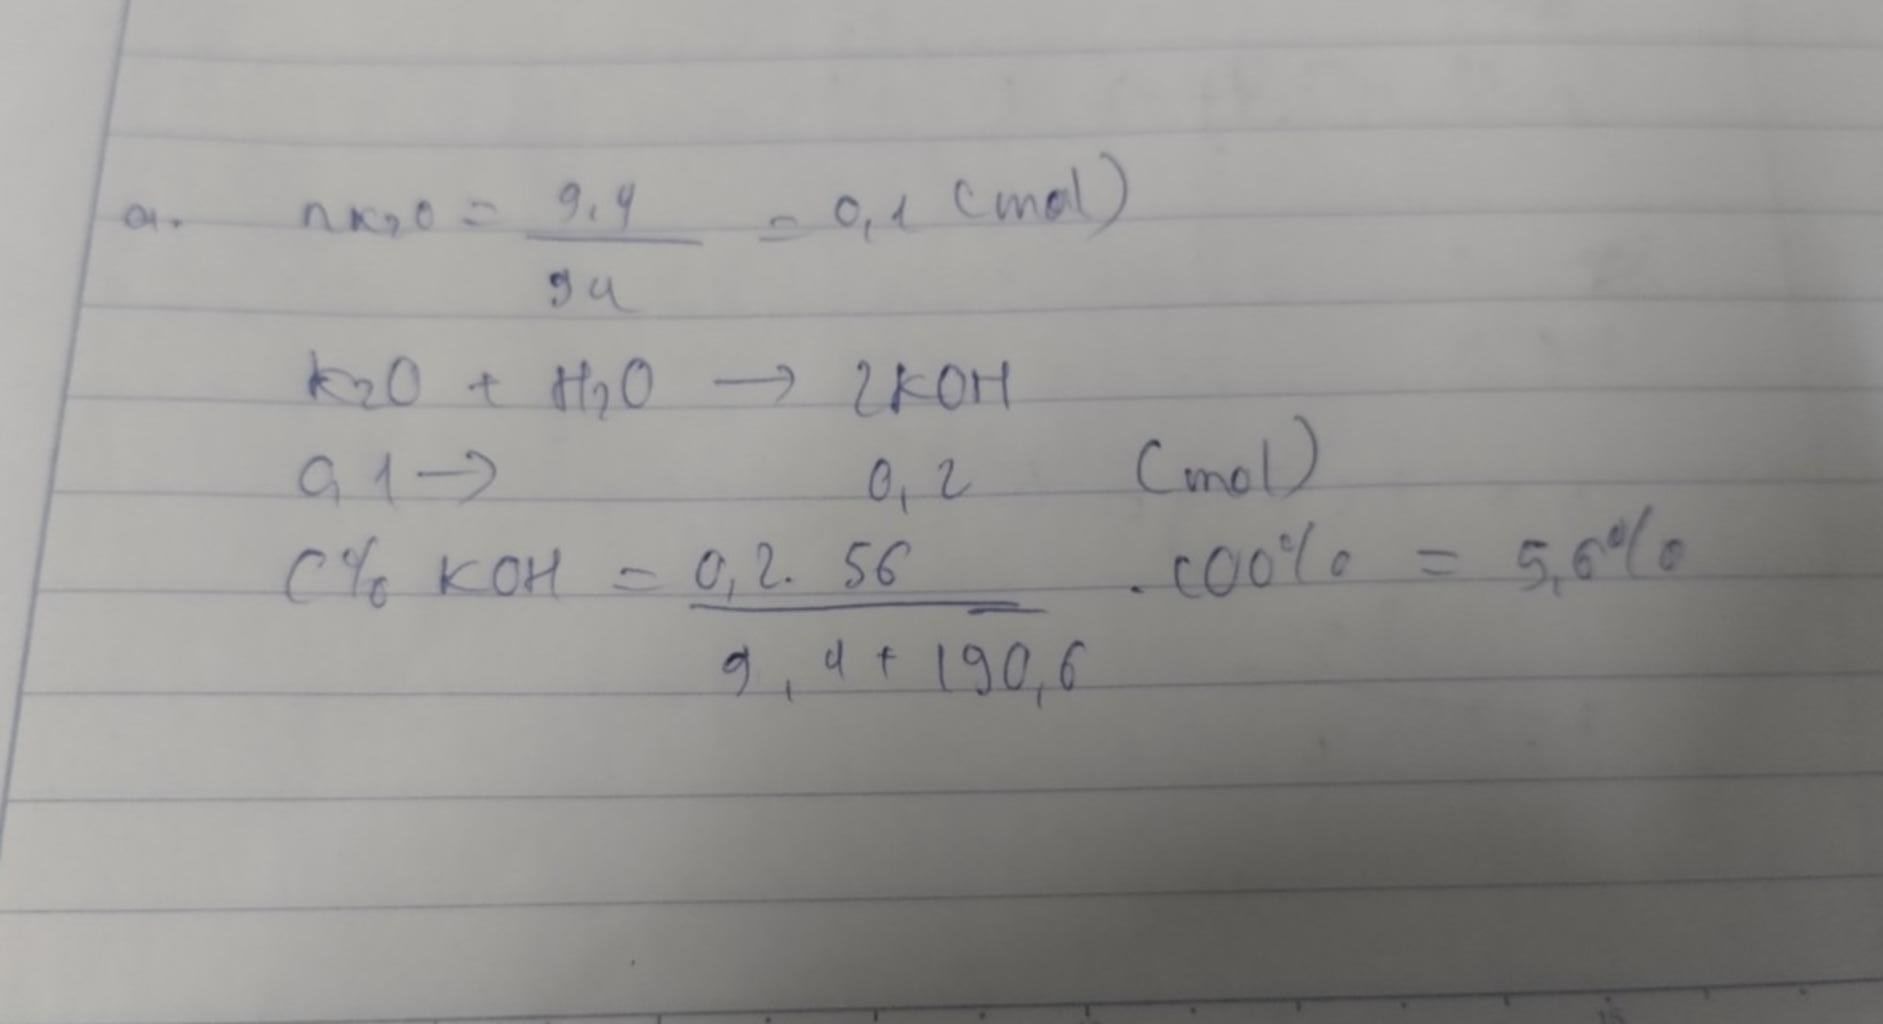 a. nK2O = 9,4 / 94 = 0,1 (mol)
K2O + H2O → 2KOH
0,1 → 0,2 (mol)
C% KOH = 0,2. 56 / 9,4 + 190,6 . 100% = 5,6%